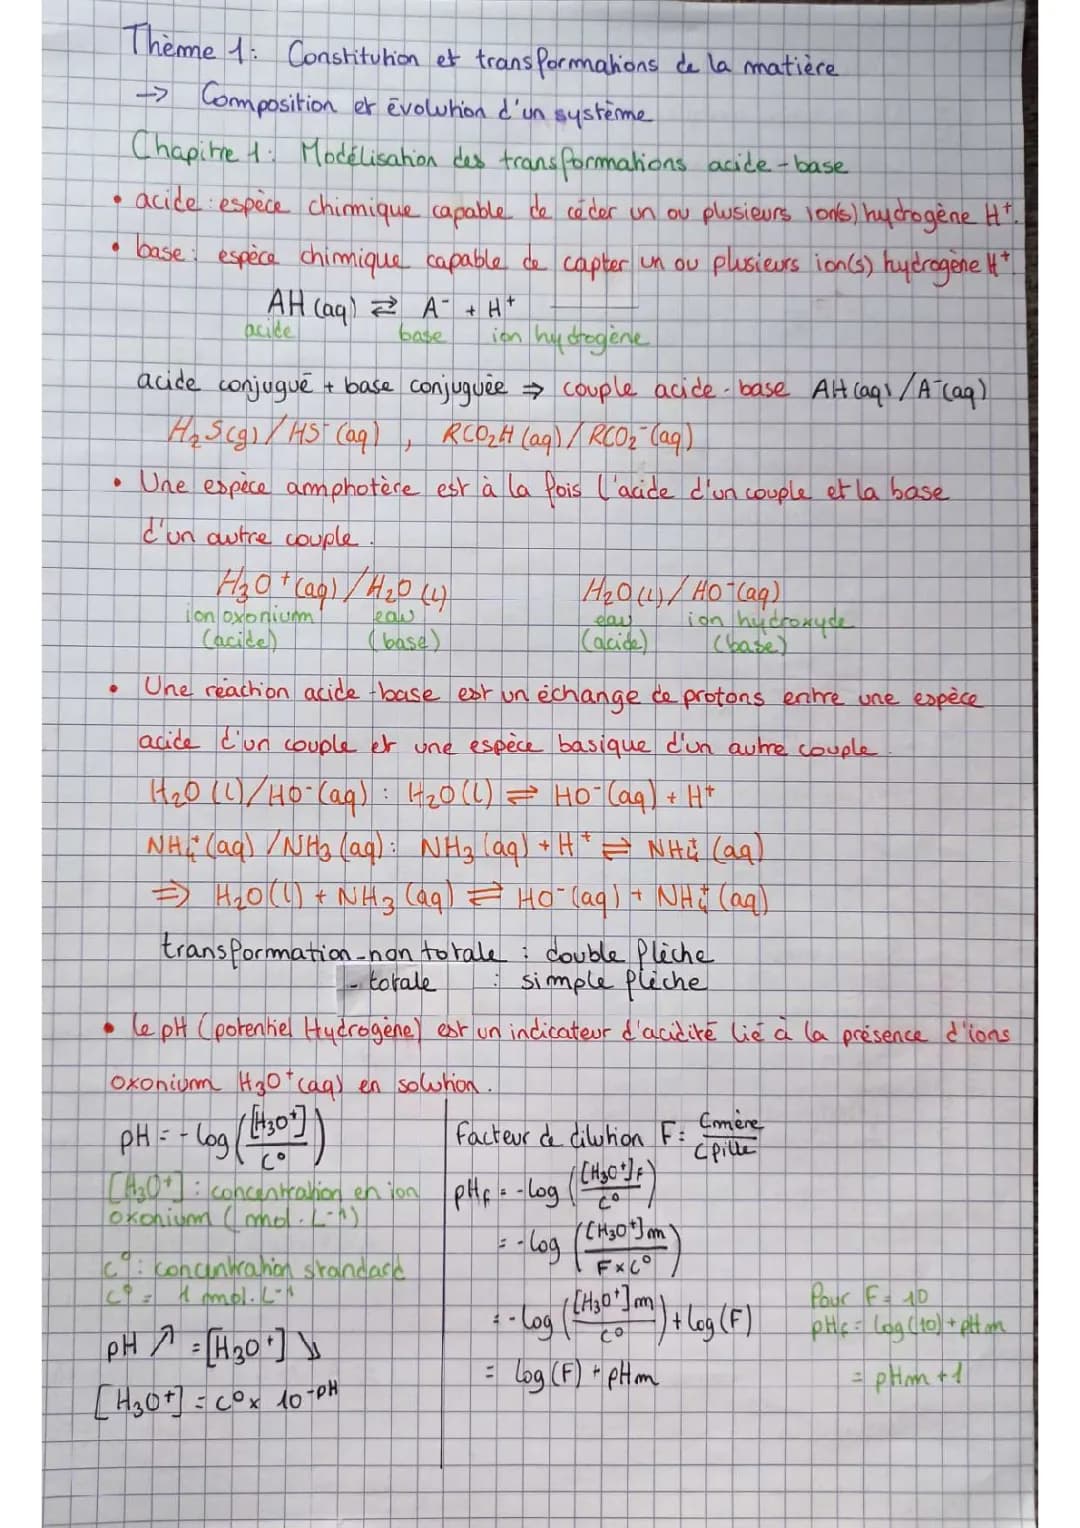 Thème 1: Constitution et transformations de la matière
-> Composition et évolution d'un système
Chapitre 1: Modélisation des transformations acide-base
• acide: espèce chimique capable de céder un ou plusieurs ion(s) hydrogène H⁺.
• base: espèce chimique capable de capter un ou plusieurs ion(s) hydrogène H⁺
AH (aq) ⇄ A⁻ + H⁺
acide base ion hydrogène
acide conjugué + base conjuguée ⇒ couple acide-base AH(aq)/A⁻(aq)
H₂S(g)/HS⁻(aq), RCO₂H(aq)/RCO₂⁻(aq)
• Une espèce amphotère est à la fois l'acide d'un couple et la base
d'un autre couple.
H₃O⁺(aq)/H₂O(l) H₂O(l)/HO⁻(aq)
ion oxonium eau eau ion hydroxyde
(acide) (base) (acide) (base)
• Une réaction acide-base est un échange de protons entre une espèce
acide d'un couple et une espèce basique d'un autre couple.
H₂O(l)/HO⁻(aq) : H₂O(l) ⇌ HO⁻(aq) + H⁺
NH₄⁺(aq)/NH₃(aq): NH₃(aq) + H⁺ ⇌ NH₄⁺(aq)
⇒ H₂O(l) + NH₃(aq) ⇌ HO⁻(aq) + NH₄⁺(aq)
transformation - non totale : double flèche
- totale : simple flèche
• Le pH (potentiel Hydrogène) est un indicateur d'acidité lié à la présence d'ions
oxonium H₃O⁺(aq) en solution.
pH = -log([H₃O⁺]/C°)
[H₃O⁺]: concentration en ion
oxonium (mol.L⁻¹)
c°: concentration standard
c° = 1 mol.L⁻¹
pH ↗ = [H₃O⁺] ↘
[H₃O⁺] = c° x 10⁻ᵖᴴ
Facteur de dilution F = Cmère/Cfille
pHf = -log([H₃O⁺]f/C°)
= -log([H₃O⁺]m/F×C°)
= -log([H₃O⁺]m/C°) + log(F)
= log(F) + pHm
Pour F = 10
pHf = log(10) + pHm
= pHm + 1